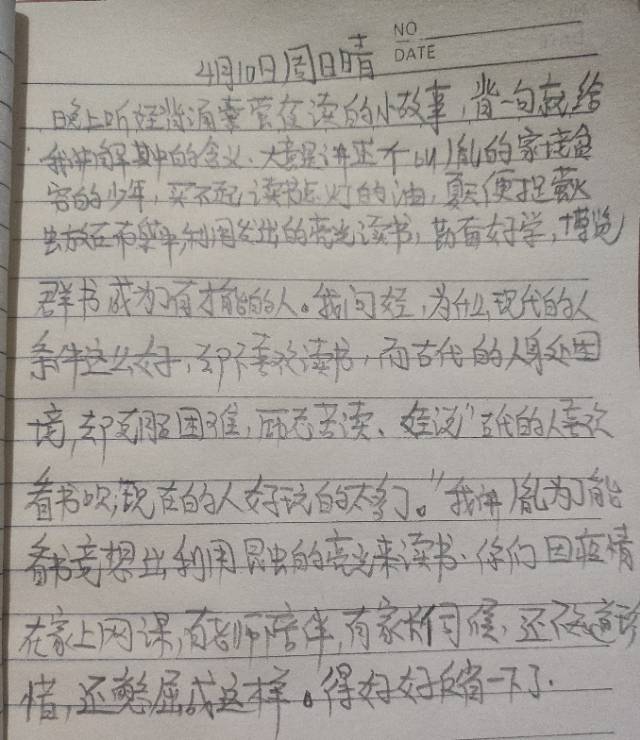 NO
DATE
4月10日周日晴
晚上听娃背诵囊萤夜读的小故事,背一句就给
我讲解其中的含义.大意是讲述个叫胤的家境贫
穷的少年,买不起读书点灯的油,夏天便捉萤火
虫放在布袋中,利用发出的亮光读书,勤奋好学,博览
群书成为了有才能的人。我问娃,为什么现代的人
条件这么好,却不喜欢读书,而古代的人身处困
境,却克服困难,历尽苦读、娃说"古代的人喜欢
看书呗,现在的人好玩的太多了。"我讲胤为了能
看书竟想出利用昆虫的亮光来读书.你们因疫情
在家上网课,有老师陪伴,有家长伺候,还不知道珍
惜,还憋屈成这样。得好好反省一下了.